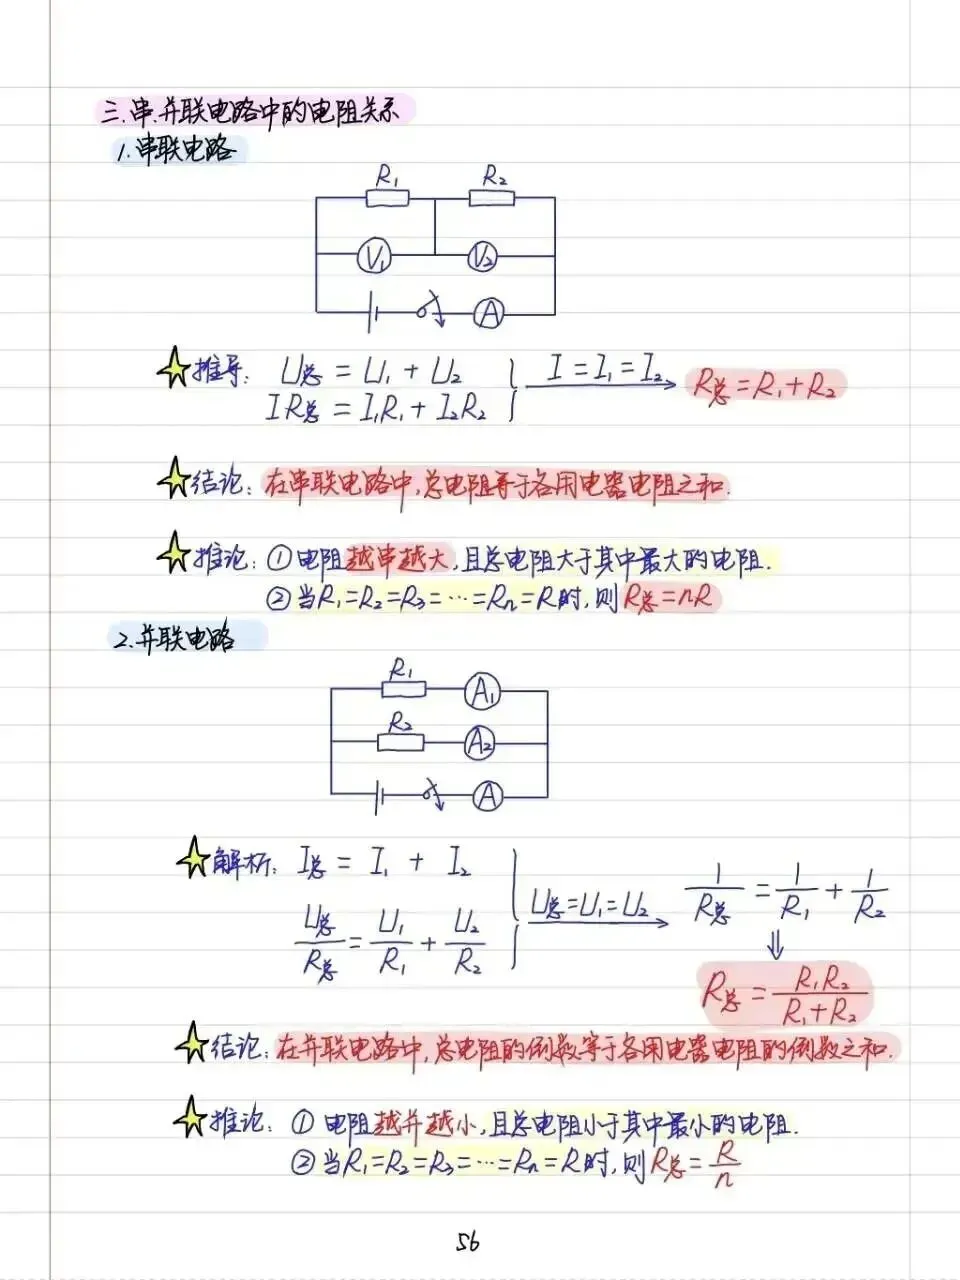 三.串.并联电路中的电阻关系
1.串联电路
R₁ R₂
V₁ V₂
A
推导: U总 = U₁ + U₂ I = I₁ = I₂ R总 = R₁ + R₂
IR总 = I₁R₁ + I₂R₂
结论: 在串联电路中,总电阻等于各用电器电阻之和.
推论: ①电阻越串越大,且总电阻大于其中最大的电阻.
②当R₁=R₂=R₃=…=Rn=R时,则R总=nR
2.并联电路
R₁ A₁
R₂ A₂
A
解析: I总 = I₁ + I₂ U总=U₁=U₂ 1/R总 = 1/R₁ + 1/R₂
U总/R总 = U₁/R₁ + U₂/R₂ ⇓
R总 = R₁R₂/R₁+R₂
结论: 在并联电路中,总电阻的倒数等于各用电器电阻的倒数之和.
推论: ① 电阻越并越小,且总电阻小于其中最小的电阻.
②当R₁=R₂=R₃=…=Rn=R时,则R总=R/n
56